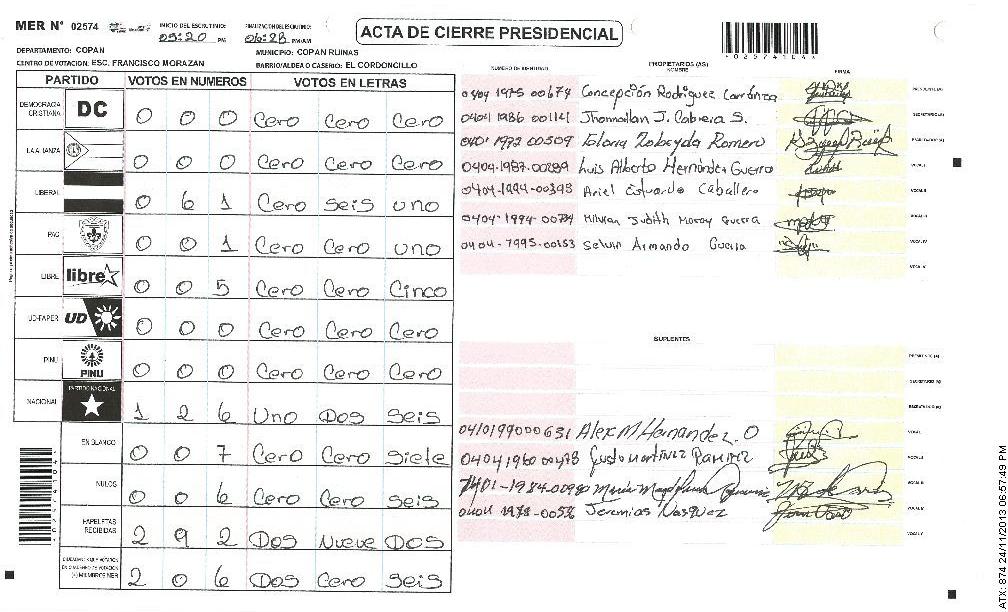 MER N° 02574
INICIO DEL ESCRUTINIO: 05:20 PM
FINALIZACION DEL ESCRUTINIO: 06:28 PM/AM
ACTA DE CIERRE PRESIDENCIAL
02574104
DEPARTAMENTO: COPAN
MUNICIPIO: COPAN RUINAS
CENTRO DE VOTACION: ESC. FRANCISCO MORAZAN
BARRIO/ALDEA O CASERIO: EL CORDONCILLO
PARTIDO VOTOS EN NUMEROS VOTOS EN LETRAS
DEMOCRACIA CRISTIANA DC 0 0 0 Cero Cero Cero
LA ALIANZA 0 0 0 Cero Cero Cero
LIBERAL 0 6 1 Cero Seis uno
PAC 0 0 1 Cero Cero uno
LIBRE libre 0 0 5 Cero Cero Cinco
UD-FAPER UD 0 0 0 Cero Cero Cero
PINU PINU 0 0 0 Cero Cero Cero
NACIONAL PARTIDO NACIONAL 1 2 6 Uno Dos Seis
EN BLANCO 0 0 7 Cero Cero Siete
NULOS 0 0 6 Cero Cero Seis
PAPELETAS RECIBIDAS 2 9 2 Dos Nueve Dos
(+) MIEMBROS MER 2 0 6 Dos Cero Seis
NUMERO DE IDENTIDAD PROPIETARIOS (AS) NOMBRE FIRMA
0404 1975 00674 Concepción Rodriguez Carránza PRESIDENTE (A)
0404 1986 001141 Jhonnatan J. Cabrera S. SECRETARIO (A)
0401 1972 00509 Zobeyda Romero ESCRUTADOR (A)
0404-1987-00289 Luis Alberto Hernández Guerra VOCAL I
0404-1994-00393 Ariel Estuardo Caballero VOCAL II
0404-1994-00 Judith Guerra VOCAL III
0404-1995-00153 Selvin Armando Guerra VOCAL IV
VOCAL V
SUPLENTES
PRESIDENTE (A)
SECRETARIO (A)
ESCRUTADOR (A)
0410199000631 Alex M Hernandez. O VOCAL I
0404 1960 00478 Gusto Martinez Ramirez VOCAL II
1401-1984-00980 Maria VOCAL III
0404 1978-0056 Jeremias Vasquez VOCAL IV
VOCAL V
02574104
ATX: 874 24/11/2013 06:57:49 PM